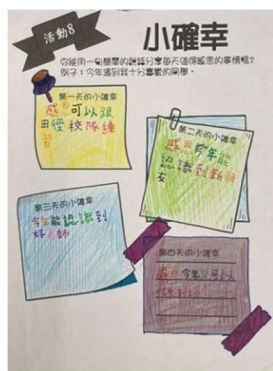 活動8
小確幸
你能用一句簡單的說話分享每天值得感恩的事情嗎?
例子:今年遇到我十分喜歡的同學。
第一天的小確幸
感恩可以
田徑校隊練
第二天的小確幸
感恩今年能
認識到新朋
友
第三天的小確幸
今年能認識到
好老師
第四天的小確幸
感恩今年可以